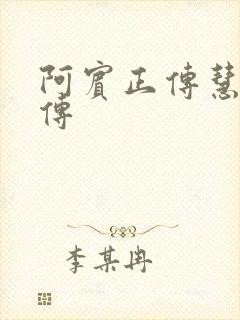 阿賓正傳慧
傳
李某冉